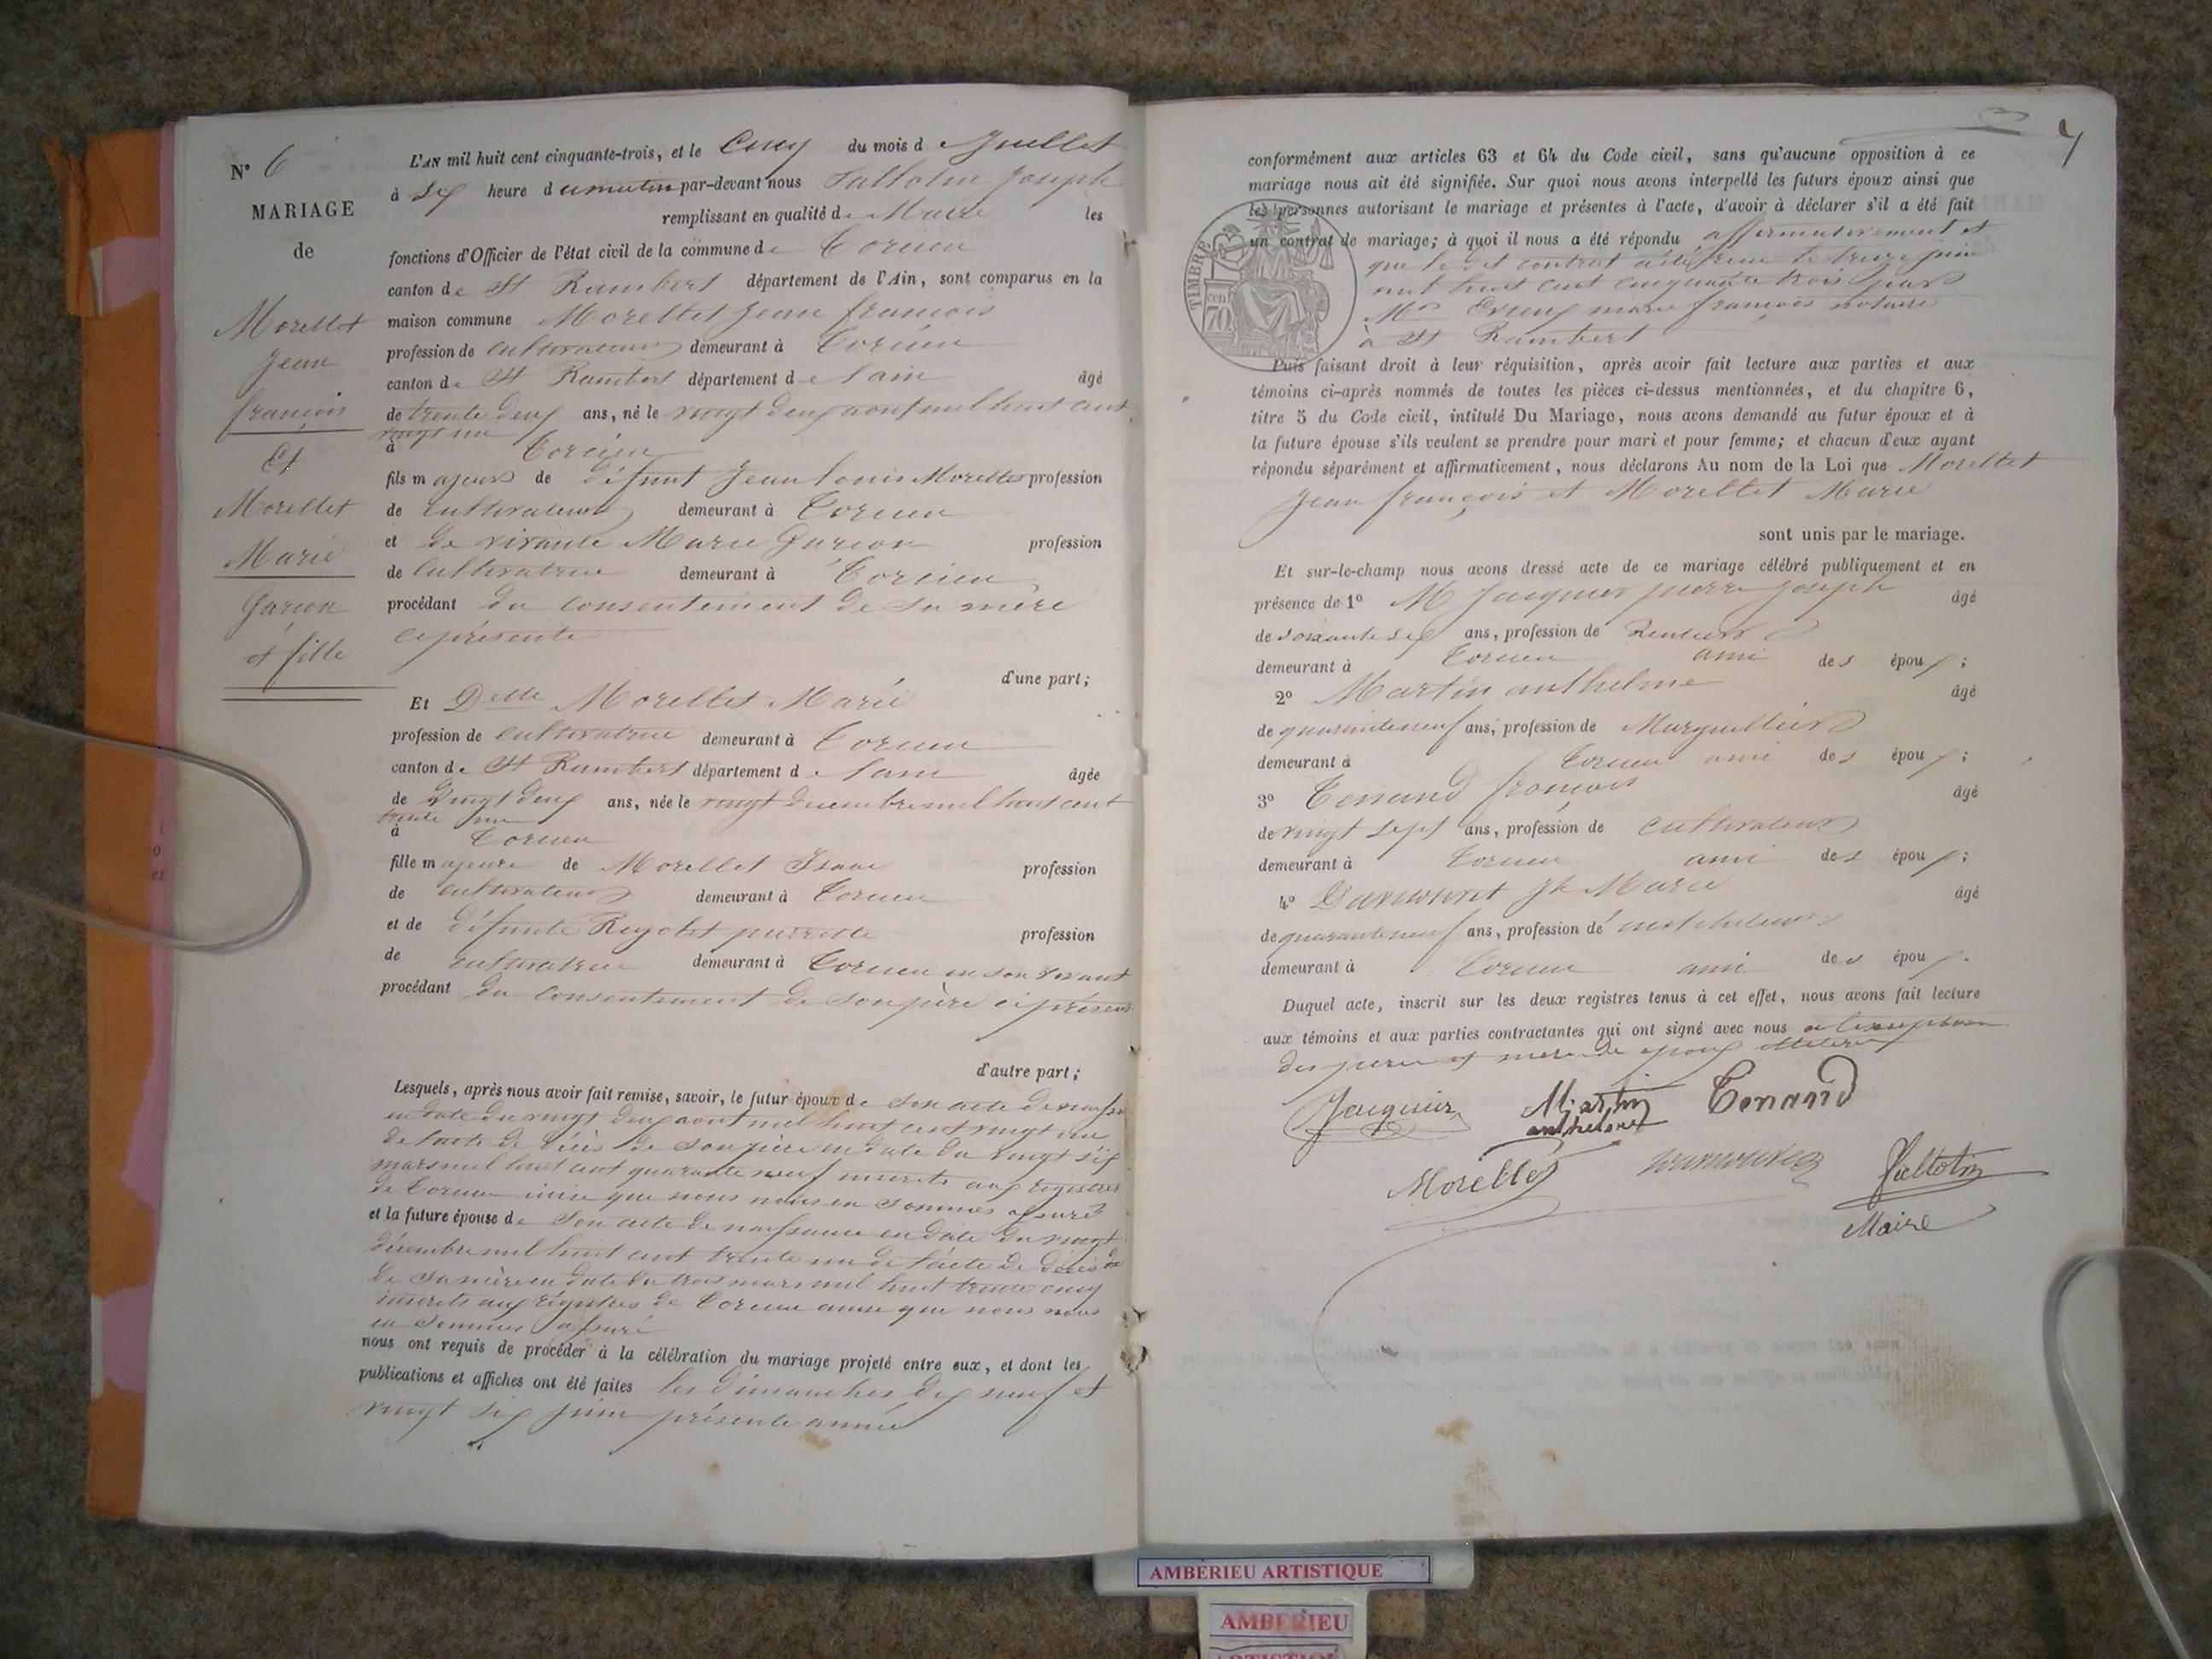 N° 6
MARIAGE
de
Morellet
Jean
françois
Et
Morellet
Marie
Garçon
et fille
L'AN mil huit cent cinquante-trois, et le Cinq du mois d Juillet
à six heure d u matin par-devant nous Joseph
remplissant en qualité de Maire les
fonctions d'Officier de l'état civil de la commune de Torcieu
canton de St Rambert département de l'Ain, sont comparus en la
maison commune Morellet Jean francois
profession de cultivateur demeurant à Torcieu
canton de St Rambert département de lain âgé
de trente deux ans, né le vingt deux aout mil huit cent
vingt un
à Torcieu
fils majeur de défunt Jean Louis Morellet profession
de cultivateur demeurant à Torcieu
et de vivante Marie profession
de Cultivatrice demeurant à Torcieu
procédant du consentement de sa mère
ci présente
d'une part;
Et Delle Morellet Marie
profession de cultivatrice demeurant à Torcieu
canton de St Rambert département de lain âgée
de vingt deux ans, née le vingt decembre mil huit cent
trente un
à Torcieu
fille majeure de Morellet Isaac profession
de cultivateur demeurant à Torcieu
et de défunte pierrette profession
de cultivatrice demeurant à Torcieu en son vivant
procédant du consentement de son père ci présent
d'autre part;
Lesquels, après nous avoir fait remise, savoir, le futur époux de son acte de naissance
en date du vingt deux aout mil huit cent vingt un
de l'acte de décès de son père en date du vingt six
mars mil huit cent quarante neuf inscrits aux registres
de Torcieu que nous nous en sommes assuré
et la future épouse de son acte de naissance en date du vingt
décembre mil huit cent trente un de l'acte de décès de
de sa mère en date du trois mars mil huit trente cinq
inscrits aux régistres de Torcieu que nous nous
en sommes assuré
nous ont requis de procéder à la célébration du mariage projeté entre eux, et dont les
publications et affiches ont été faites les dimanches dix neuf et
vingt six juin présente année
7
conformément aux articles 63 et 64 du Code civil, sans qu'aucune opposition à ce
mariage nous ait été signifiée. Sur quoi nous avons interpellé les futurs époux ainsi que
les personnes autorisant le mariage et présentes à l'acte, d'avoir à déclarer s'il a été fait
un contrat de mariage; à quoi il nous a été répondu affirmativement et
que le dit contrat a été reçu le treize juin
mil huit cent cinquante trois par
Me marie françois notaire
à St Rambert
TIMBRE
cen
70
Puis faisant droit à leur réquisition, après avoir fait lecture aux parties et aux
témoins ci-après nommés de toutes les pièces ci-dessus mentionnées, et du chapitre 6,
titre 5 du Code civil, intitulé Du Mariage, nous avons demandé au futur époux et à
la future épouse s'ils veulent se prendre pour mari et pour femme; et chacun d'eux ayant
répondu séparément et affirmativement, nous déclarons Au nom de la Loi que Morellet
Jean françois et Morellet Marie
sont unis par le mariage.
Et sur-le-champ nous avons dressé acte de ce mariage célébré publiquement et en
présence de 1° M Jacquier pierre Joseph âgé
de soixante six ans, profession de Rentier
demeurant à Torcieu ami des époux;
2° Martin anthelme âgé
de quarante neuf ans, profession de Marguillier
demeurant à Torcieu ami des époux;
3° Tenand françois âgé
de vingt sept ans, profession de cultivateur
demeurant à Torcieu ami des époux;
4° Marie âgé
de quarante neuf ans, profession de
demeurant à Torcieu ami des époux.
Duquel acte, inscrit sur les deux registres tenus à cet effet, nous avons fait lecture
aux témoins et aux parties contractantes qui ont signé avec nous a l'exception
des père et mère
Jacquier
Martin
anthelme
Tenand
Morellet
Maire
AMBERIEU ARTISTIQUE
AMBERIEU
ARTISTIQUE